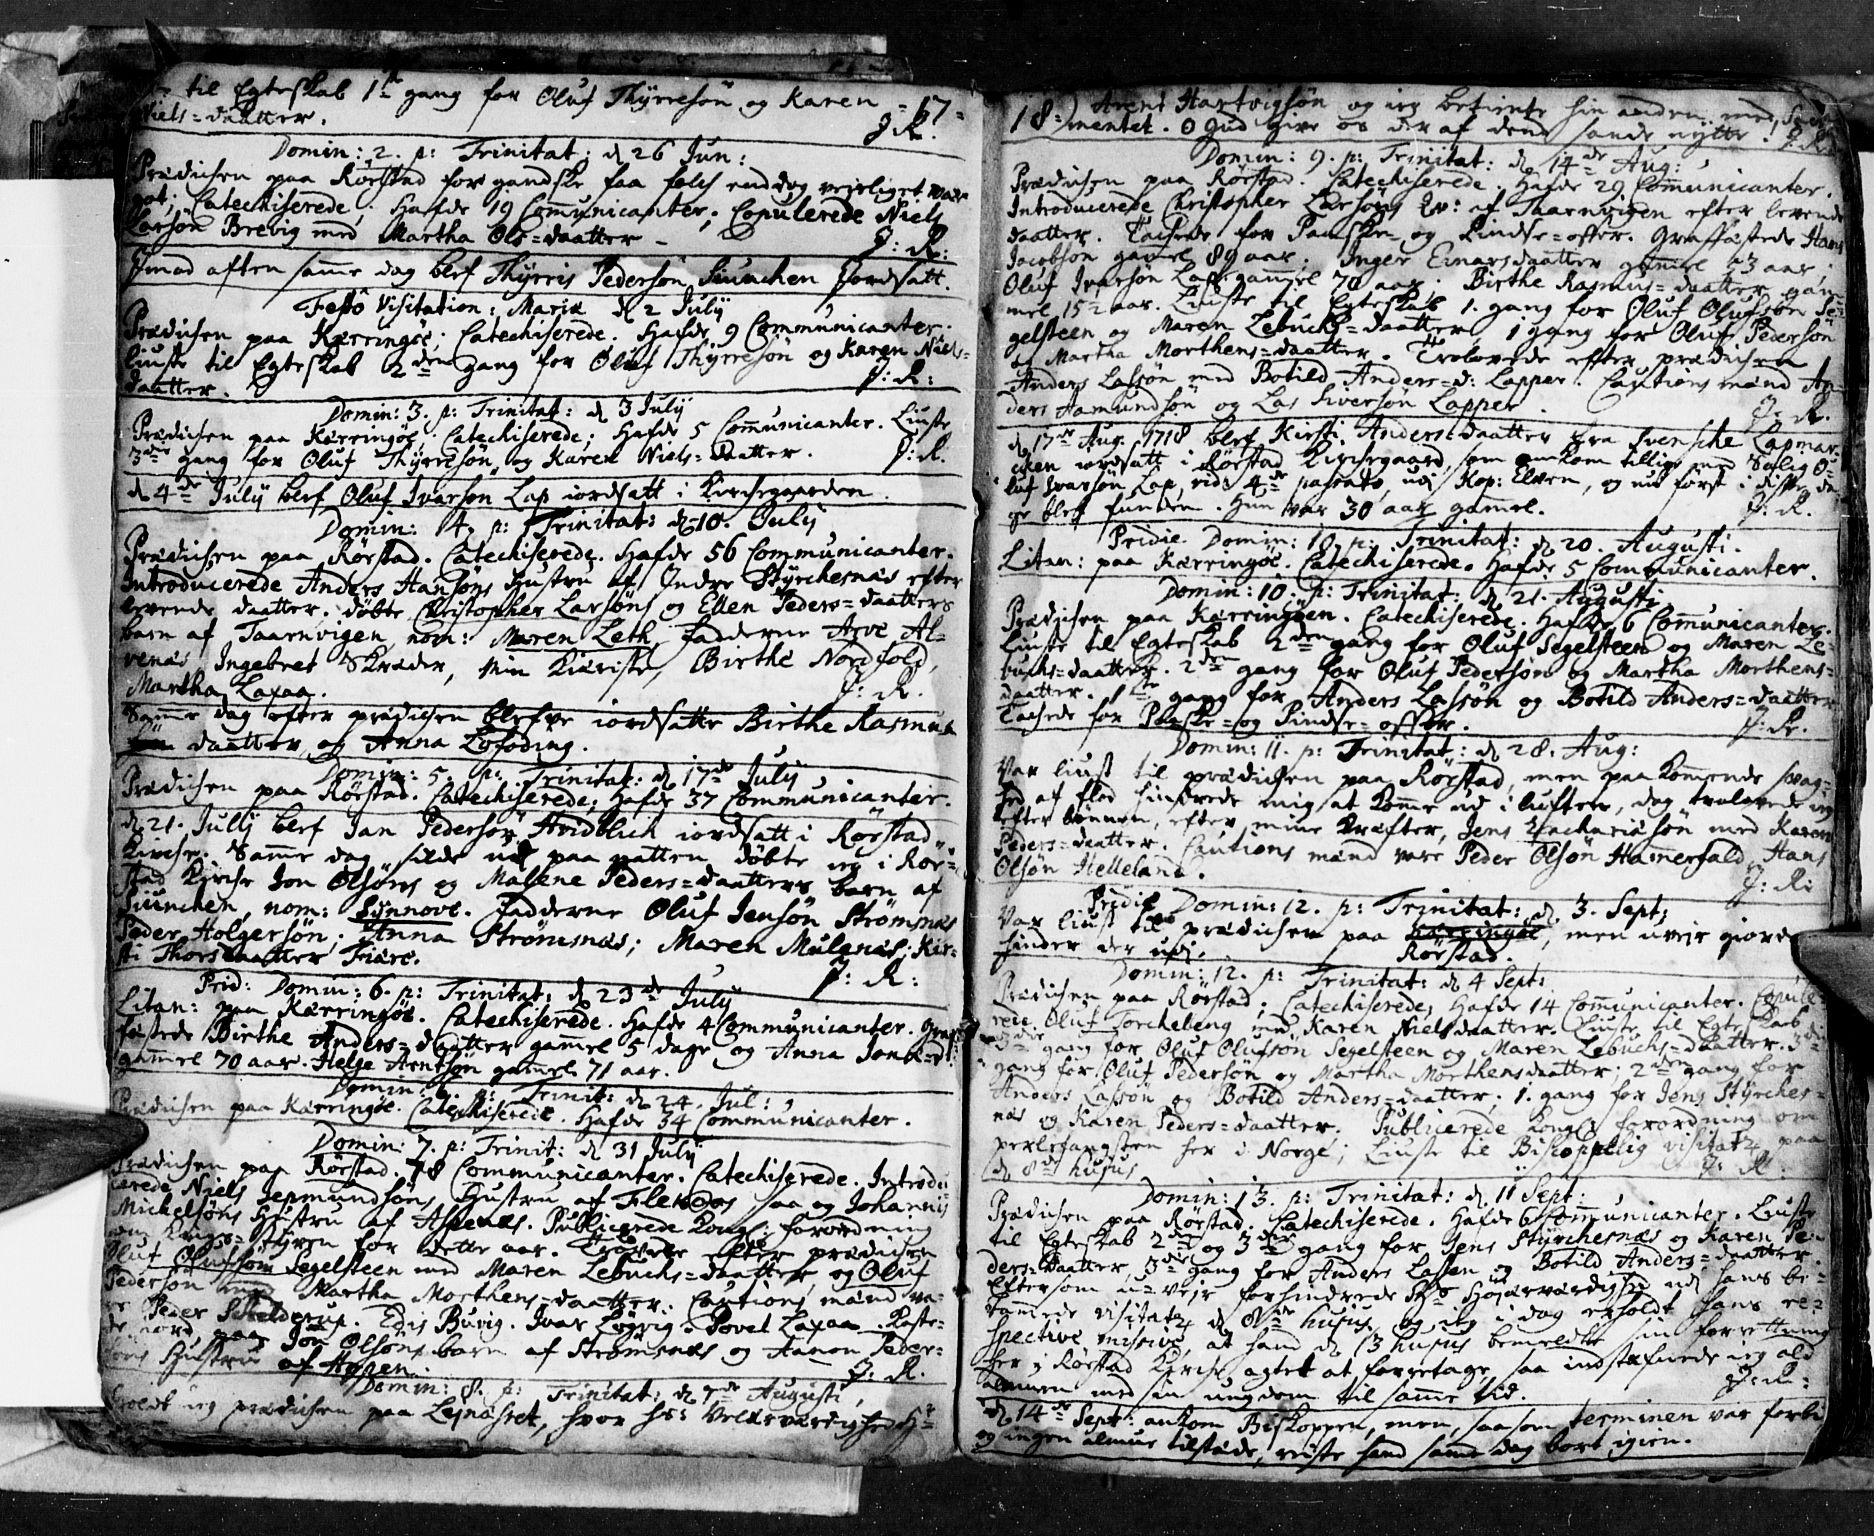 til Egteskab 1ste gang for Oluf Thÿrresön og Karen =17=
Niels=daatter. J: R.
Domin: 2. p: Trinitat: d 26 Jun:
Prædichen paa Rörstad for gandske faa folch endog vejerliget war
got; Catechiserede. Hafde 19 Communicanter. Copulerede Niels
Larsön Brevig med Martha Ols=daatter. J: R:
Imod aften samme dag blef Thÿrris Pedersön Siunchen jordsatt.
Festo Visitation: Mariæ d 2 Julÿ
Prædichen paa Kærringöe; Catechiserede. Hafde 9 Communicanter.
Liuste til Egteskab 2den gang for Oluf Thÿrresön og Karen Niels=
daatter. J: R:
Domin: 3. p: Trinitat: d 3 Julÿ
Prædichen paa Kærringöe; Catechiserede; Hafde 5 Communicanter. Liuste
3die gang for Oluf Thÿrresön og Karen Niels=daatter. J: R.
d 4de Julÿ blef Oluf Ivarsön Lap iordsatt i Kirchegaarden.
Domin: 4. p: Trinitat: d 10. Julÿ
Prædichen paa Rörstad. Catechiserede. Hafde 56 Communicanter.
Introducerede Anders Hansöns Hustru af Indre Stÿrchesnæs efter
levende daatter. döbte Christopher Larsöns og Ellen Peders=daatters
barn af Taarnvigen, nom: Maren Leth, fadderne Arve Al-
venæs, Ingebret Skræder, Min Kiæriste, Birthe Nordfold,
Martha Laxaa. J: R.
Samme dag efter prædichen blefve iordsatte Birthe Rasmus
daatter, og Anna Lofoding.
Domin: 5. p: Trinitat: d 17de Julÿ
Prædichen paa Rörstad. Catechiserede; Hafde 37 Communicanter.
d 21. Julÿ blef Jan Pedersön Hvidblich iordsatt i Rörstad
Kirche. Samme dag silde ud paa natten döbte ieg i Rör=
stad Kirche Jon Olsöns og Malene Peders=daatters barn af
Siunchen, nom: Sÿnnove. Fadderne Oluf Jensön Strömsnæs
Peder Holgersön; Anna Strömsnæs; Maren Mulenæs; Kir=
sti Thorsdaatter Fiære. J: R:
Prid: Domin: 6. p: Trinitat: d 23de Julÿ
Litan: paa Kærringöe. Catechiserede. Hafde 4 Communicanter. Graf=
fæstede Birthe Anders=daatter gamel 5 dage og Anna Jons=d:
gamel 70 aar. Helge Arntsön gamel 71 aar.
Domin: 6. p: Trinit: d 24. Jul:
Prædichen paa Kærringöe. Catechiserede. Hafde 34 Communicanter.
Domin: 7. p: Trinit: d 31 Julÿ
Prædichen paa Rörstad. 78 Communicanter. Catechiserede. Introdu
cerede Niels Jermundsöns Hustru af Flendos saa og Johannis
Michelsöns Hustru af Aspenæs. Publicerede Kongl: forordning
om Krigs=stÿren for dette aar. Trolovede efter prædichen
Oluf Olufsön Segelsteen med Maren Lebuchs=daatter, og Oluf
Pedersön med Martha Morthens=daatter. Cautions mænd va-
re Peder Schelderup. Edis Buvig. Ivar Løgvig. Povel Laxaa. Kaste=
de iord paa Jön Olsöns barn af Strömsnæs og Aamon Peder=
söns Hustru af Aspen. J: R.
Domin: 8. p: Trinitat: d 7de Augusti,
holdt ieg prædichen paa Lejnæsret, hvor hs: Velærværdighed Hr
18=) Arent Hartvigsön og ieg betiente hin anden med Sacra
mentet. O Gud give os der af dend sande nÿtte! J: R.
Domin: 9. p: Trinitat: d 14de Aug:
Prædichen paa Rörstad. Catechiserede. Hafde 29 Communicanter.
Introducerede Christopher Larsöns Qv: af Taarnvigen efter levende
daatter. Tachede for Paaske= og Pindse=offer. Graffæstede Hans
Jacobsön gamel 89 aar. Inger Einarsdaatter gamel 53 aar.
Oluf Ivarsön Lap gammel 70 aar. Birthe Rasmus=daatter gam
mel 15½ aar. Liuste til Egteskab 1. gang for Oluf Olufsön Se=
gelsteen og Maren Lebuchs=daatter, 1 gang for Oluf Pedersön
og Martha Morthens=daatter. Trolovede efter prædichen
Anders Lassön med Botild Anders=d: Lapper. Cautions mænd An-
ders Aamundsön og Las Siversön Lapper. J: R.
d 17de Aug. 1718 blef Kirsti Anders=daatter fra Svenske Lapmar-
chen iordsatt i Rörstad Kirchegaard, som omkom tillige med Salig O=
luf Ivarsön Lap, vid: 4de passato, udi Kop: Elven, og nu först i disse da-
ge blef funden. Hun war 30 aar gamel. J: R.
Pridie Domin: 10. p: Trinitat: d 20. Augusti.
Litan: paa Kærringöe. Catechiserede. Hafde 5 Communicanter.
Domin: 10. p: Trinitat: d 21. Augusti
Prædichen paa Kærringöen. Catechiserede. Hafde 6 Communicanter.
Liuste til Egteskab 2den gang for Oluf Segelsteen og Maren Le-
buchs=daatter. 2den gang for Oluf Pedersön og Martha Morthens=
daatter. 1ste gang for Anders Lassön og Botild Anders=daatter
Tachede for Paaske=og Pindse=offer. J: R.
Domin: 11. p: Trinitat: d 28. Aug:
Var liust til prædichen paa Rörstad, men paa kommende svag-
hed af flod hindrede mig at komme ud i luften, dog trolovede ieg
efter bönnen, efter mine kræfter, Jens Zachariæsön med Karen
Peders=daatter. Cautions mænd vare Peder Olsön Hamerfald, Hans
Olsön Helleland. J: R:
Pridie Domin: 12. p: Trinitat: d 3. Sept:
Var liust til prædichen paa Kærringöe, men uvejr giorde
hinder der udi. Rörstad.
Domin: 12. p: Trinitat: d 4 Sept:
Prædichen paa Rörstad; Catechiserede; Hafde 14 Communicanter. Copule=
rede Oluf Torchelsng med Karen Nielsdaatter. Liuste til Egteskab
3die gang for Oluf Olufsön Segelsteen og Maren Lebuchs=daatter. 3die
gang for Oluf Pedersön og Martha Morthensdaatter. 2den gang for
Anders Lassön og Botild Anders=daatter. 1. gang for Jens Stÿrches=
næs og Karen Peders=daatter. Publicerede Kongl: forordning om
perlefangsten her i Norge; Liuste til Biskoppelig visitatz paa
d 8de hujus. J: R.
Domin: 13. p: Trinitat: d 11 Sept:
Prædichen paa Rörstad. Catechiserede. Hafde 6 Communicanter. Liuste
til Egteskab 2den og 3die gang for Jens Stÿrchesnæs og Karen Pe=
ders=daatter, 3die gang for Anders Lassen og Botild Anders=daatter.
Eftersom u=vejr forhindrede Hs Höjærværdighed udj hans be=
rammede visitatz d 8de hujus, og ieg i dag erholdt hans re=
spective missive, at hand d 13 hujus bemeldte sin forrettning
her i Rörstad Kirche agtet at foretage, saa indstæfnede ieg ald
almuen med sin ungdom til samme tid. J: R:
d 14de Sept: ankom Biskoppen, men, saasom terminen var forbi
og ingen almue tilstæde, reiste hand samme dag bort igien.